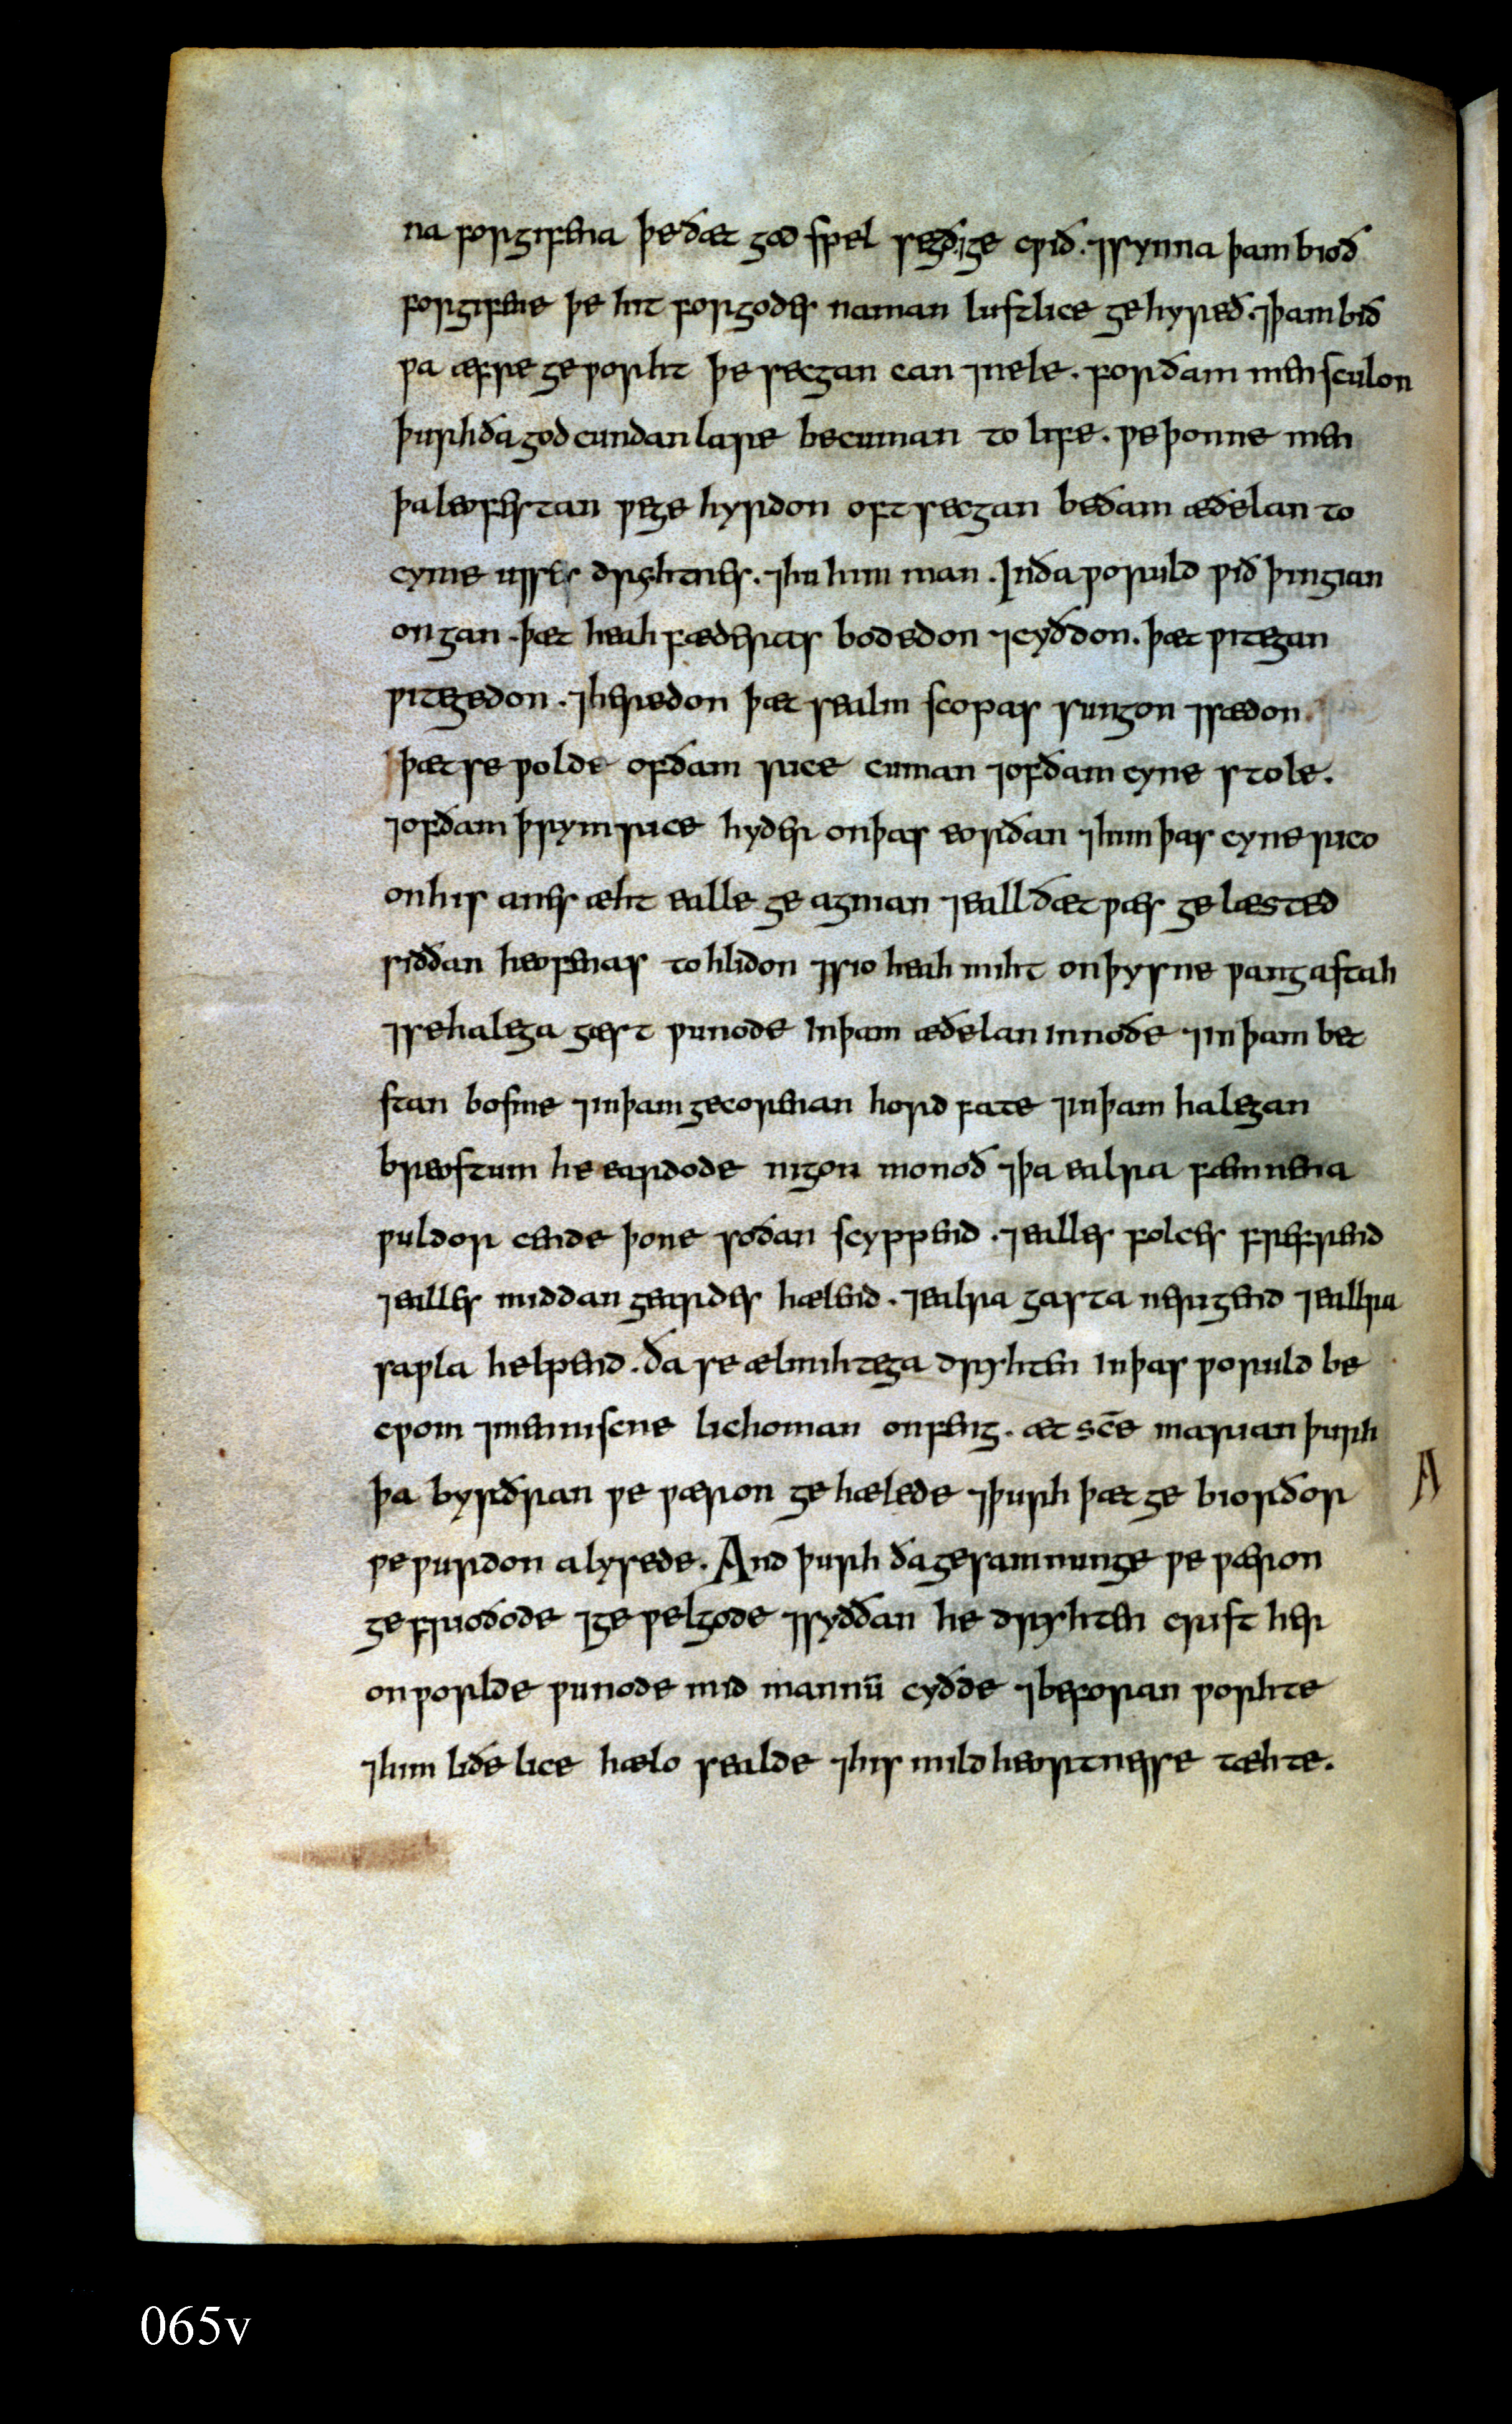 na forgifena þe ðæt god spel segð ⁊ge cƿið. ⁊synna þam bioð
forgifene þe hit for godes naman lustlice gehyreð. ⁊þam bið
ƿa æfre geƿorht þe secgan can ⁊nele. forðam men sculon
þurh ða godcundan lare becuman to life. ƿe þonne men
þa leofestan ƿe gehyrdon oft secgan be ðam æðelan to
cyme usses dryhtnes. ⁊hu him man. In ða ƿoruld ƿið þingian
ongan. þæt heah fæderas bodedon ⁊cyðdon. þæt ƿitegan
ƿitegedon. ⁊heredon þæt sealm scopas sungon ⁊sædon.
þæt se ƿolde of ðam rice cuman ⁊of ðam cyne stole.
⁊of ðam þrym rice hyder on þas eorðan ⁊him þas cyne rico
on his anes æht ealle geagnian ⁊eall ðæt ƿæs gelæsted
siððan heofenas tohlidon ⁊sio heah miht on þysne ƿang astah
⁊se halega gæst ƿunode in þam æðelan innoðe ⁊in þam bet
stan bosme ⁊in þam gecorenan hord fate ⁊in þam halegan
breostum he eardode nigon monoð ⁊þa ealra fæmnena
ƿuldor cende þone soðan scyppend. ⁊ealles folces frefrend
⁊ealles middan geardes hælend. ⁊ealra gasta nergend ⁊eallra
saƿla helpend. ða se ælmihtega dryhten in þas ƿoruld be
cƿom ⁊menniscne lichoman onfeng. æt sc̄e marian þurh
þa byrðran ƿe ƿæron gehælede ⁊þurh þæt ge beorðor
ƿe ƿurdon alysede. And þurh ða gesamnunge ƿe ƿæron
gefrioðode ⁊geƿelgode ⁊syððan he dryhten crist her
on ƿorlde ƿunode mid mannū cyðde ⁊beforan ƿorhte
⁊him liðelice hælo sealde ⁊his mildheortnesse tæhte.
A
065v